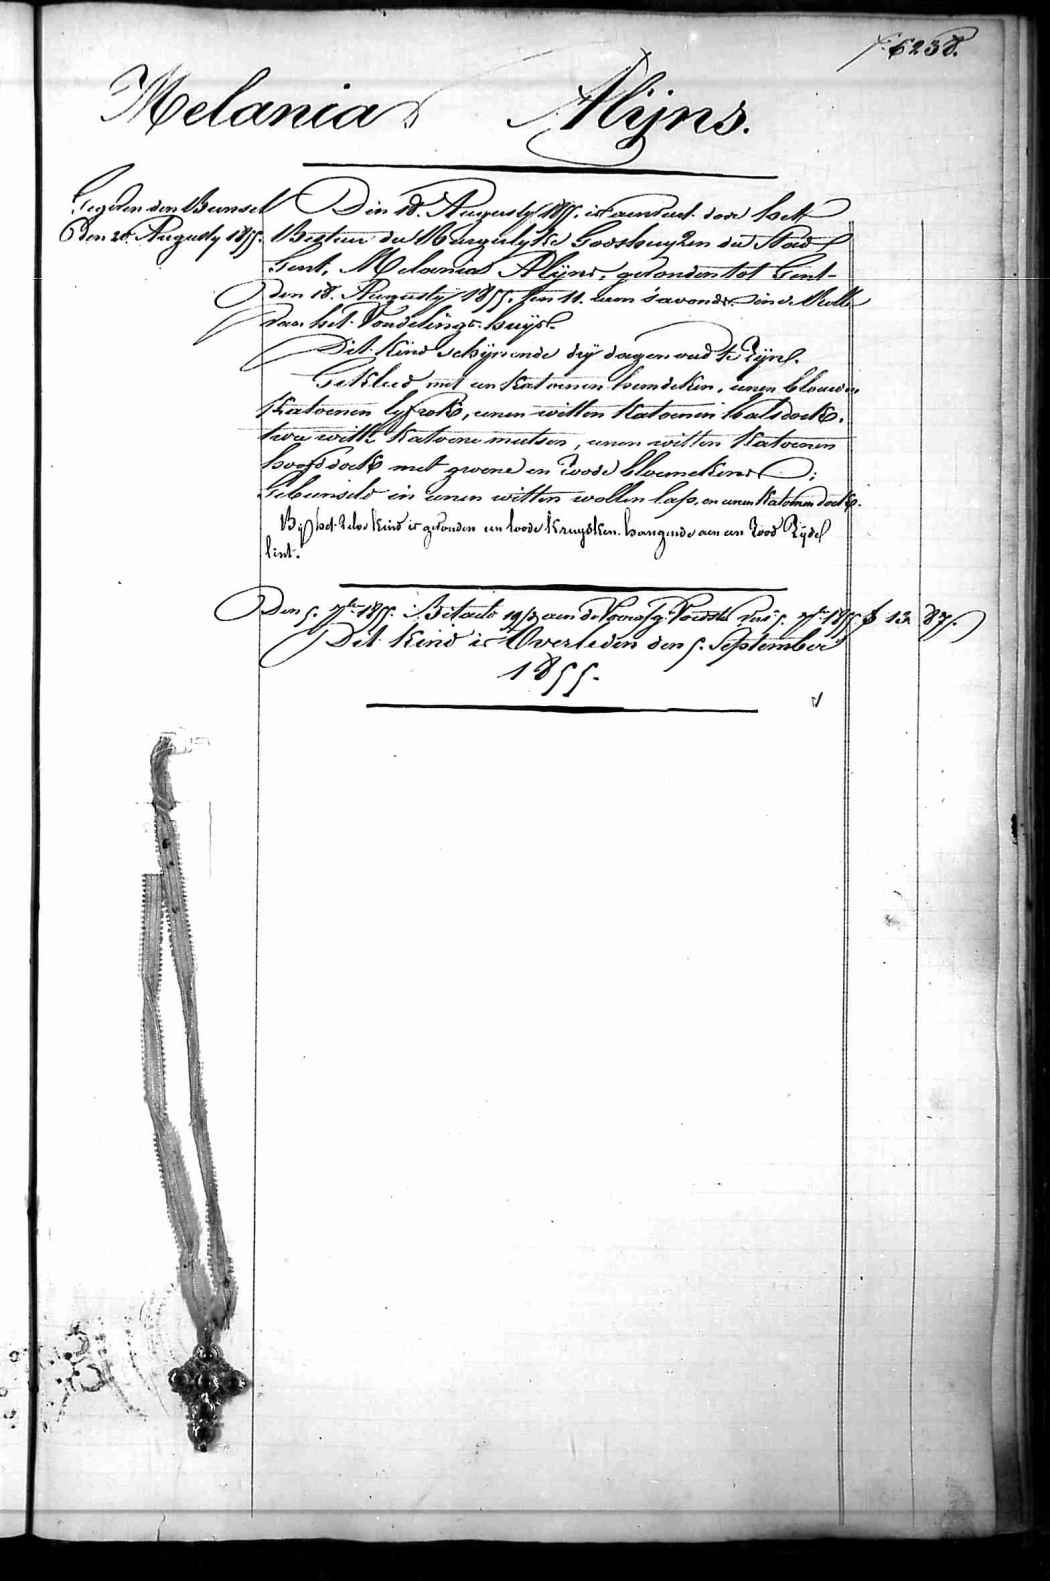 f. 6238.
Melania Alijns.
Gegeven den Bunsel
den 20. Augusty 1855.
Den 18. Augusty 1855. is aenveerd door het
Bestuur der Burgerlyke Godshuyzen der Stad
Gent, Melania Alijns, gevonden tot Gent
den 18. Augusty 1855. ten 11. uren s'avonds in de Rolle
van het Vondelings-huys.
Dit kind schijnende drij dagen oud te zijn.
Gekleed met een katoenen hemdeken, eenen blauwen
katoenen lyfrok, eenen witten katoenen halsdoek,
twee witte katoene mutsen, eenen witten katoenen
hoofddoek met groene en roode bloemekens;
Gebunseld in eenen witten wollen lap, en eenen katoenen doek.
Bij het zelve kind is gevonden een loode kruysken hangende aen een rood zyde
lint.
Den 5. 7ber 1855. Betaeld 19/3 aen de Voedster 5. 7ber 1855 f 13 87.
Dit kind is Overleden den 5. September
1855.